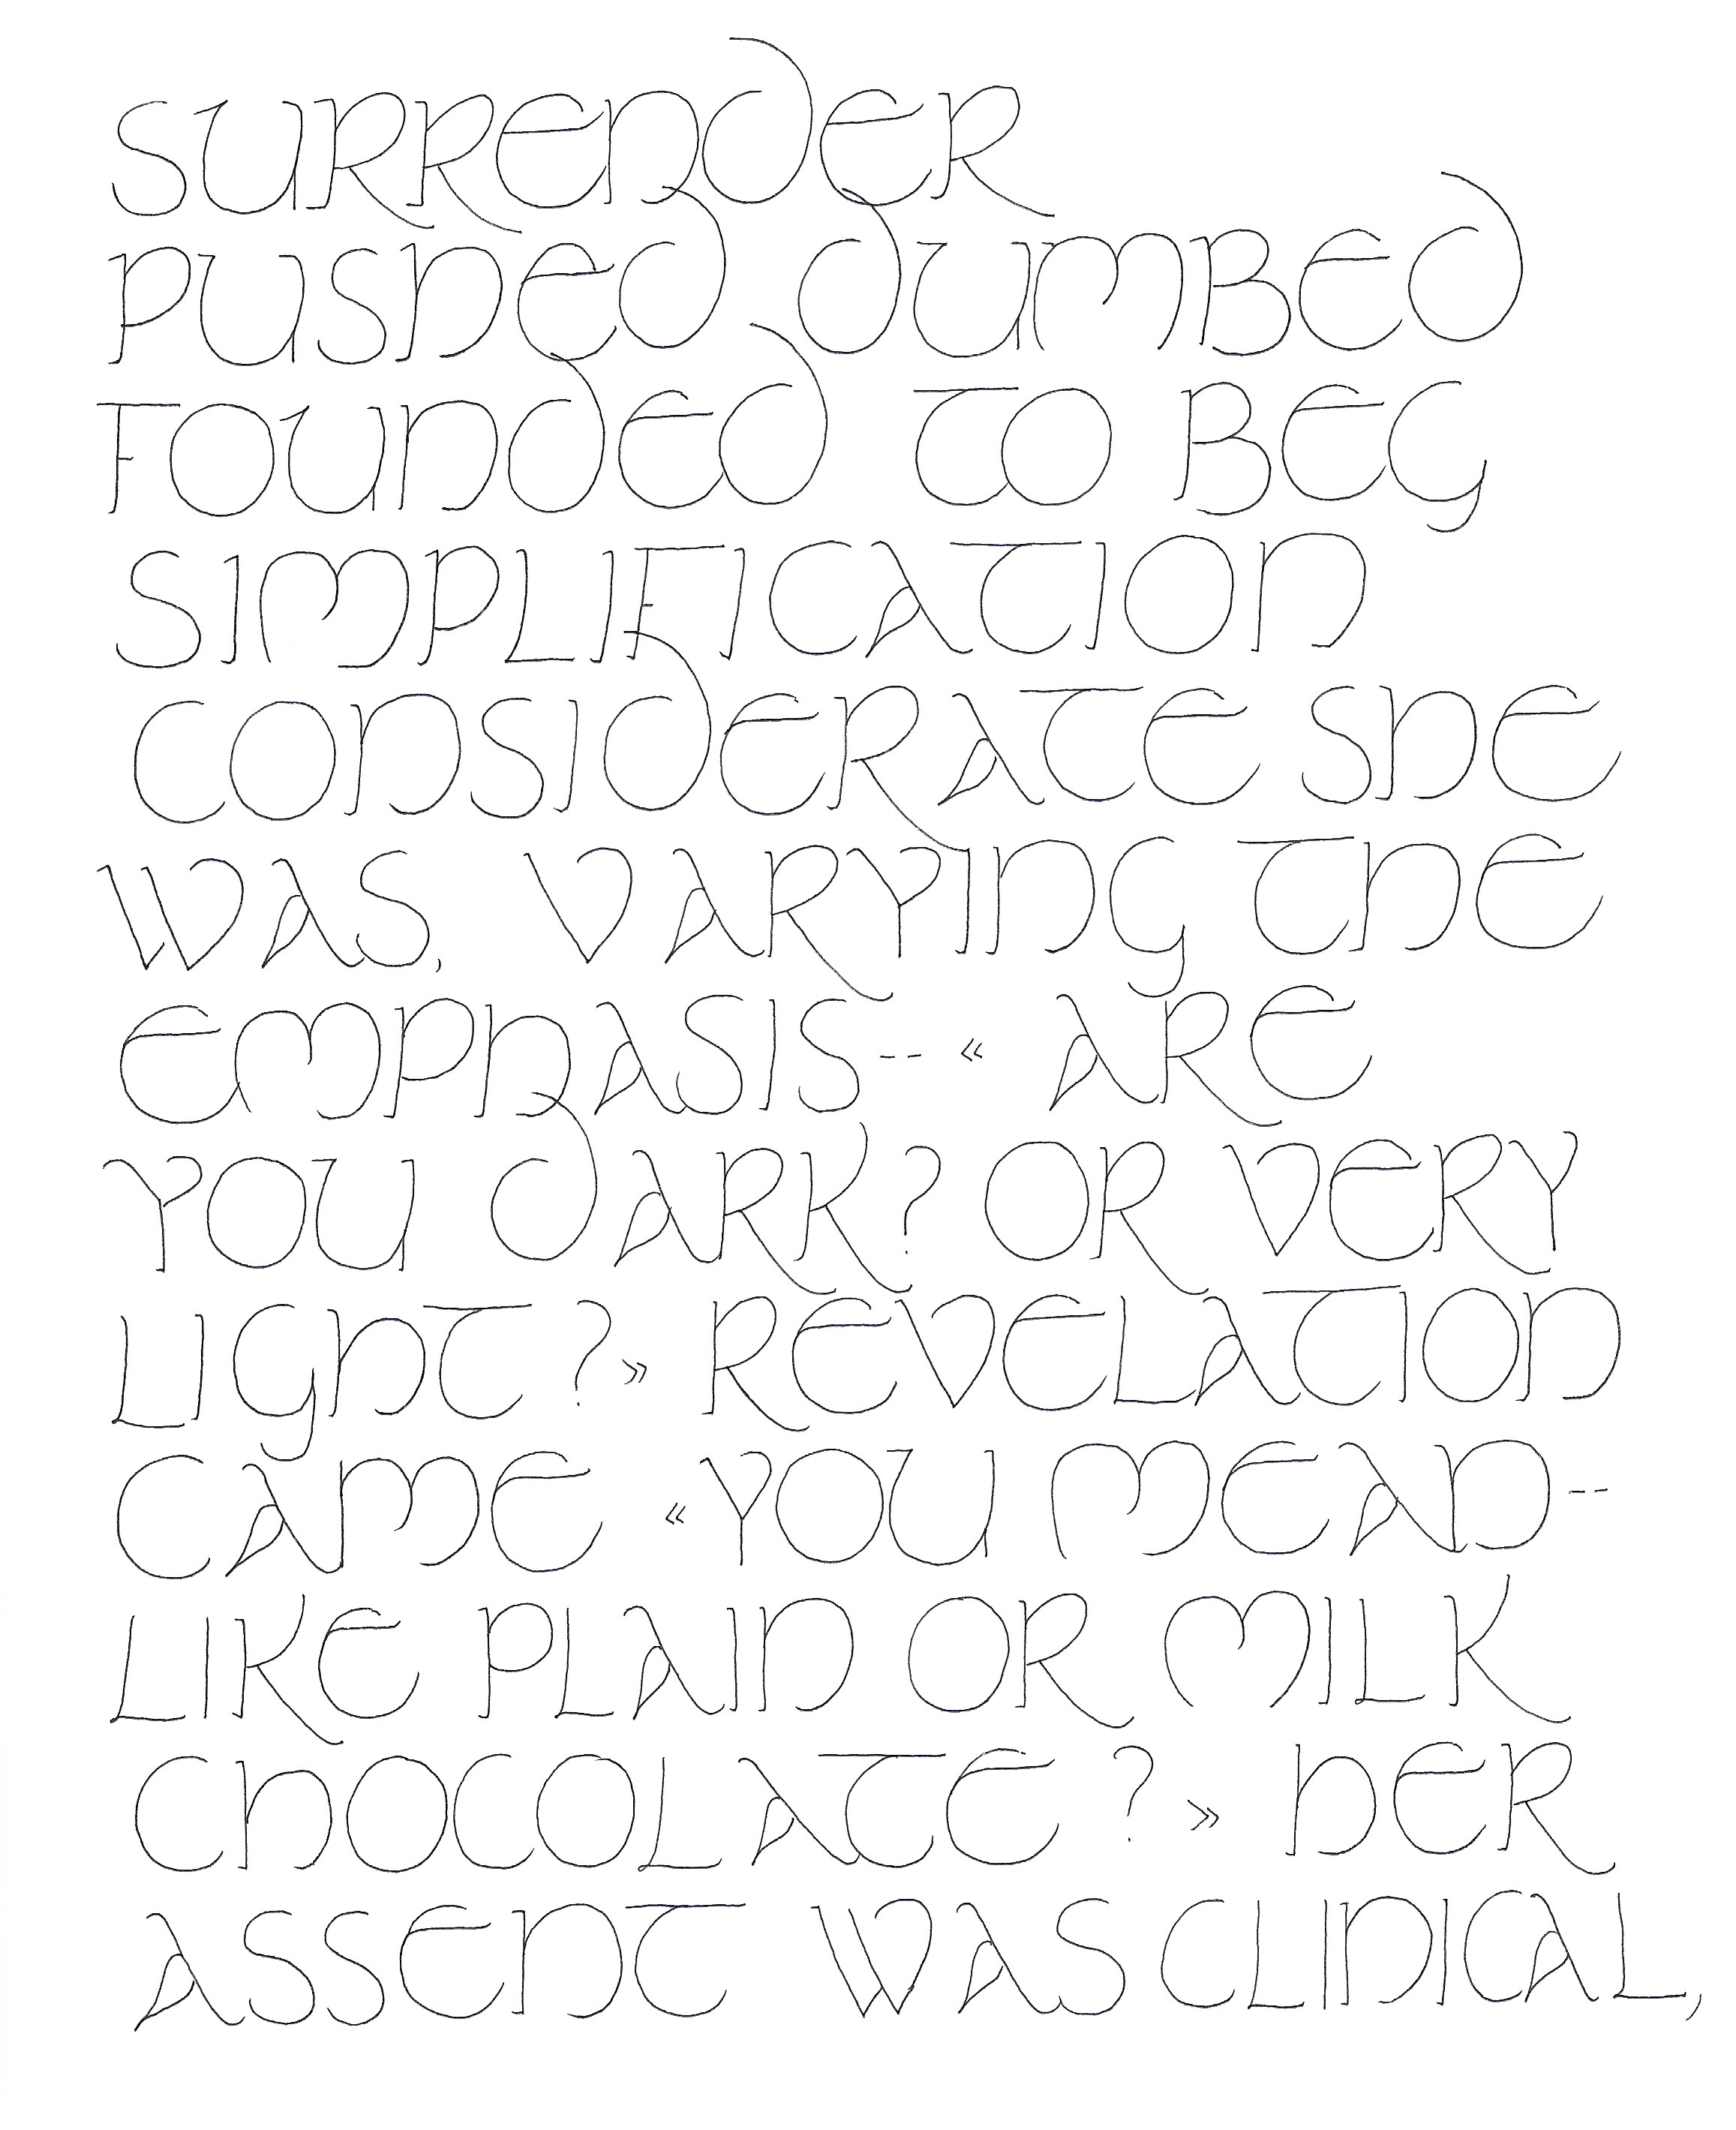 SURRENDER
PUSHED DUMBED
FOUNDED TO BEG
SIMPLIFICATION
CONSIDERATE SHE
WAS, VARYING THE
EMPHASIS-- « ARE
YOU DARK? OR VERY
LIGHT?» REVELATION
CAME «YOU MEAN--
LIKE PLAIN OR MILK
CHOCOLATE ?» HER
ASSENT WAS CLINICAL,